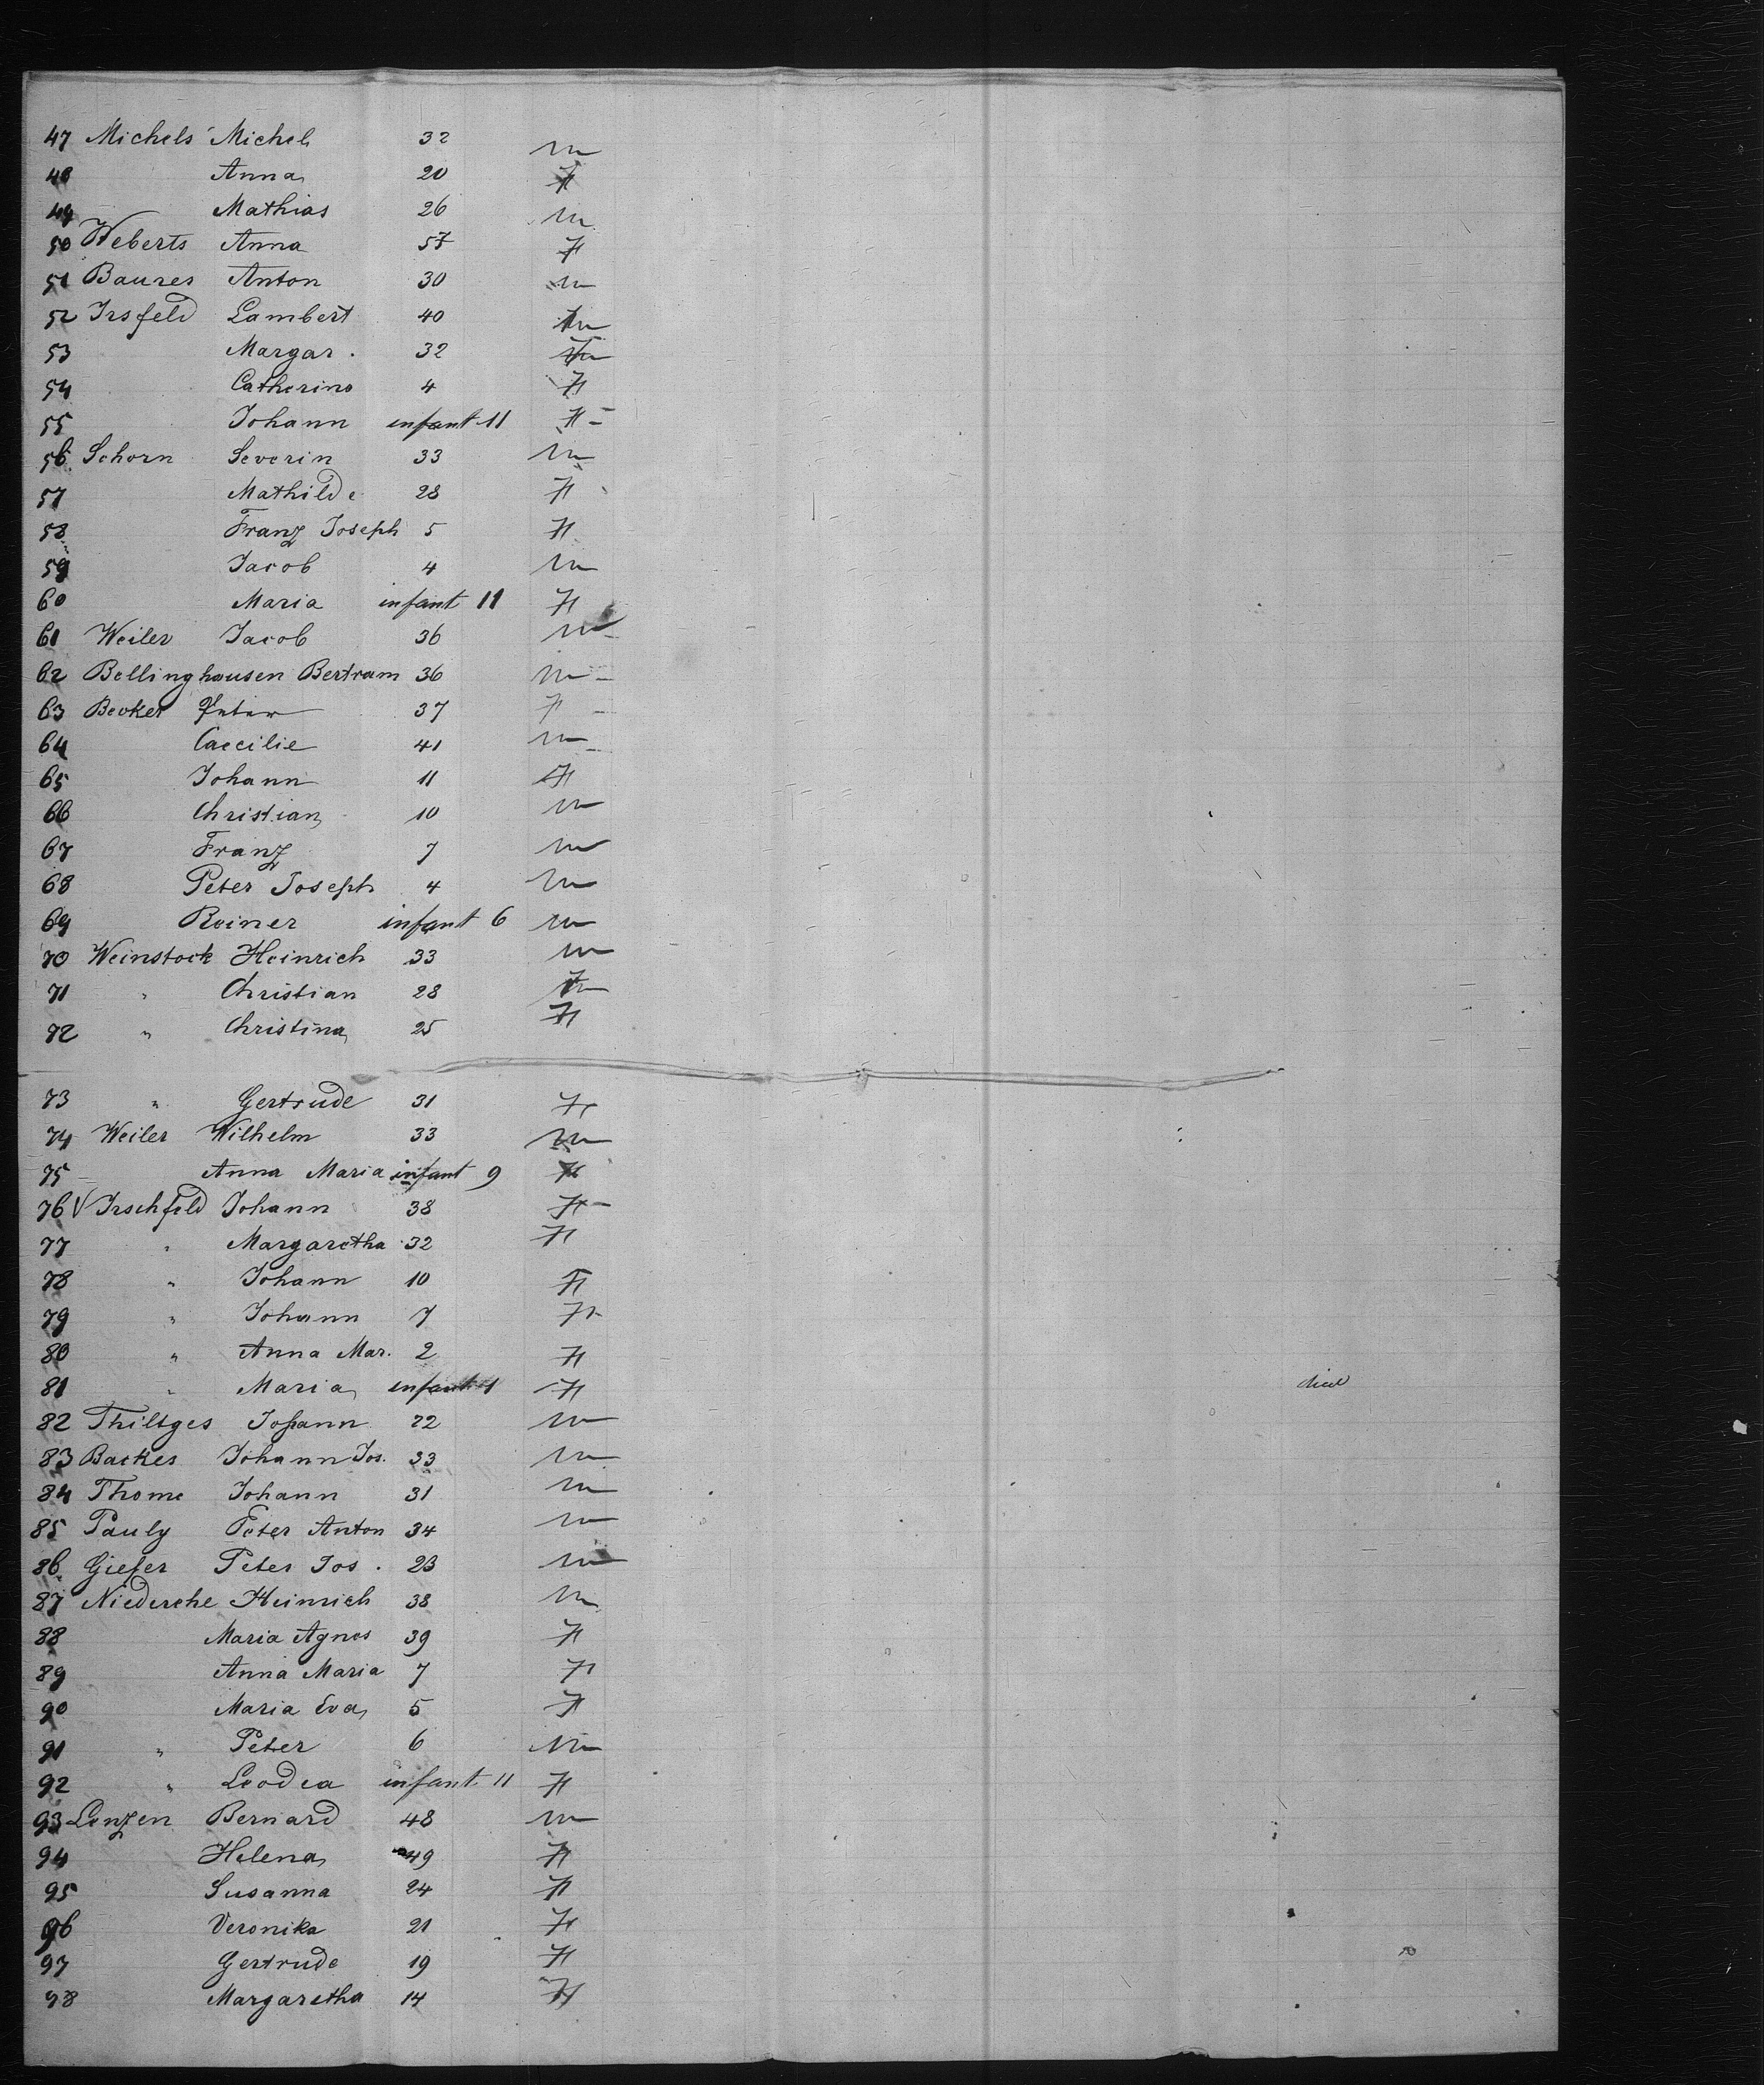 47 Michels Michel 32 m
48 Anna 20 F
49 Mathias 26 m
50 Weberts Anna 57 F
51 Baures Anton 30 m
52 Irsfeld Lambert 40 m
53 Margar. 32
54 Catherine 4 F
55 Johann infant 11 F
56 Schorn Severin 33 m
57 Mathilde 28 F
58 Franz Joseph 5 F
59 Jacob 4 m
60 Maria infant 11 F
61 Weiler Jacob 36 m
62 Bellinghausen Bertram 36 m
63 Becker Peter 37 F
64 Caecilie 41 m
65 Johann 11 F
66 Christian 10 m
67 Franz 7 m
68 Peter Joseph 4 m
69 Reiner infant 6 m
70 Weinstock Heinrich 33 m
71 " Christian 28 m
72 " Christina 25 F
73 " Gertrude 31 F
74 Weiler Wilhelm 33 m
75 Anna Maria infant 9 F
76 V Irschfeld Johann 38 F
77 " Margaretha 32 F
78 " Johann 10 F
79 " Johann 7 F
80 " Anna Mar. 2 F
81 " Maria infant 1 F died
82 Thiltges Johann 22 m
83 Backes Johann Jos. 33 m
84 Thome Johann 31 m
85 Pauly Peter Anton 34 m
86 Giefer Peter Jos. 23 m
87 Niederehe Heinrich 38 m
88 Maria Agnes 39 F
89 Anna Maria 7 F
90 Maria Eva 5 F
91 " Peter 6 m
92 " Leodia infant 11 F
93 Lenzen Bernard 48 m
94 Helena 49 F
95 Susanna 24 F
96 Veronika 21 F
97 Gertrude 19 F
98 Margaretha 14 F